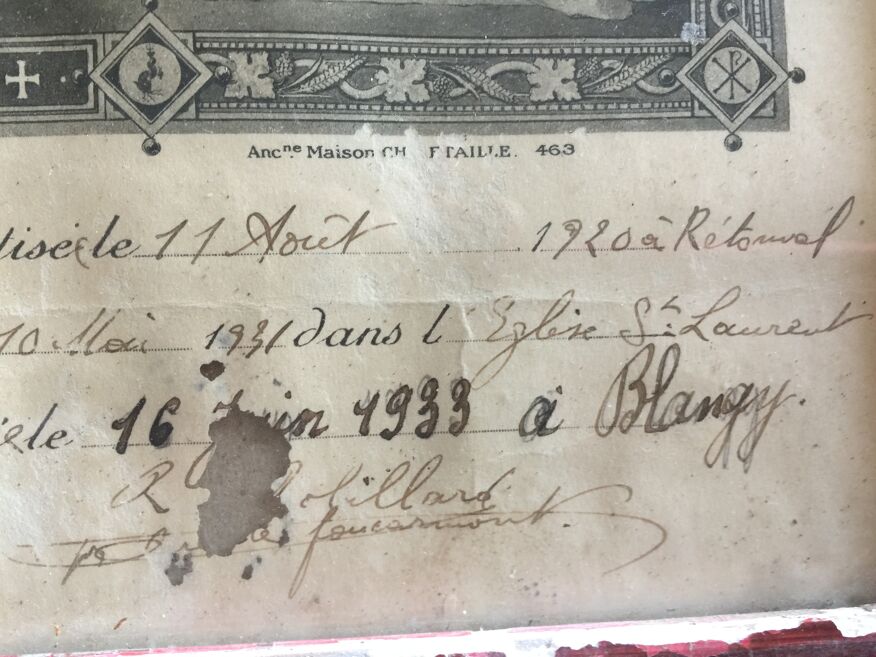 Ancne Maison CH ETAILLE. 463
tisé(e le 11 Août 1920 à Rétonval
10 Mai 1931 dans l'Eglise St. Laurent
le 16 Juin 1933 à Blangy.
R
de foucarmont.